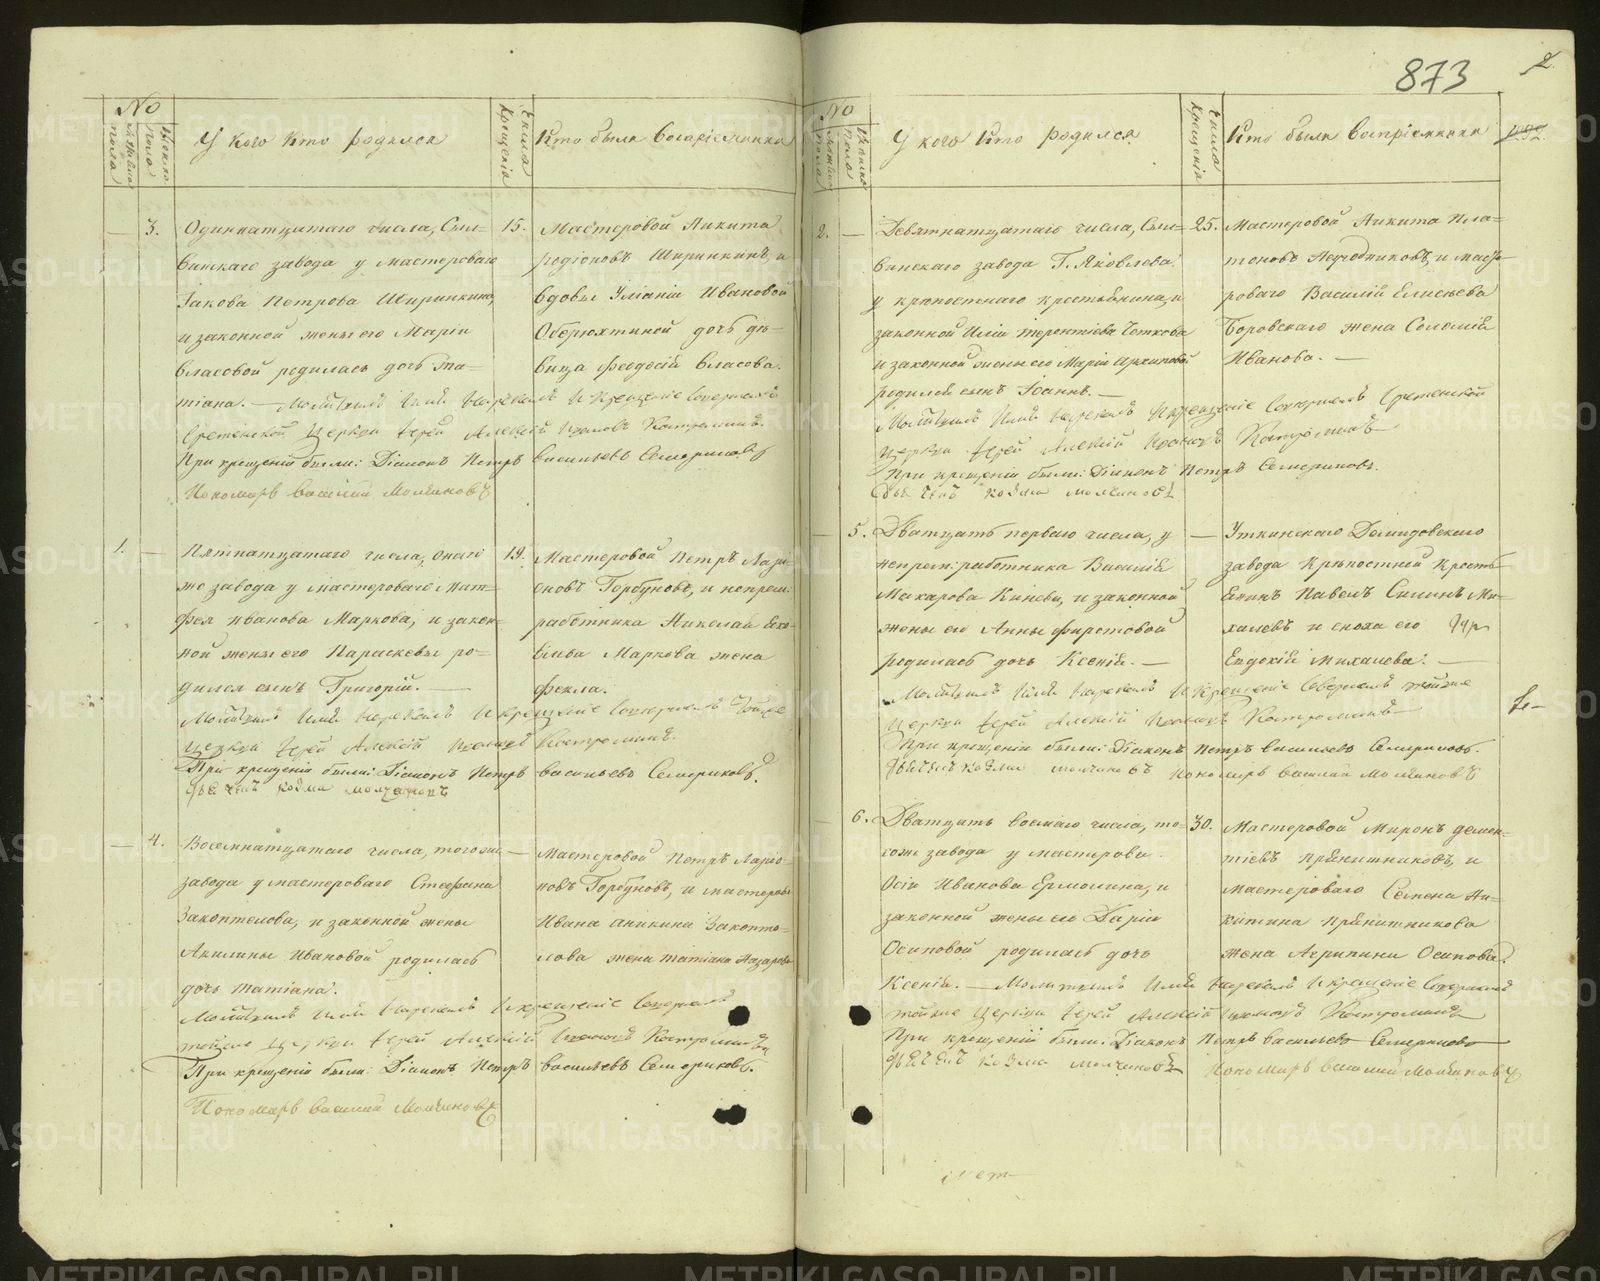 873
2
№
Мужеска пола
Женска пола
У кого кто родился
Числа крещенія
Кто были воспріемники
3. Одиннатцатаго числа, Сыл-
винскаго завода у мастероваго
Іакова Петрова Ширинкина,
и законной жены его Маріи
Власовой родилась дочь Та-
тіана. — Молитвилъ имя нарекалъ и крещеніе совершалъ
Сретенской церкви іерей Алексій
При крещеніи были: Діаконъ Петръ Васильевъ Семериковъ
Пономарь Василий Молчановъ
15. Мастеровой Никита
Родіоновъ Ширинкинъ, и
вдовы Уліаніи Ивановой
Оберюхтиной дочь дѣ-
вица Феодосія Власова.
1. — Пятнатцатаго числа, онаго
же завода у мастероваго Мат-
фея Иванова Маркова, и закон-
ной жены его Параскевы ро-
дился сынъ Григорій. —
Молитвилъ имя нарекалъ и крещеніе совершалъ тойже
церкви іерей Алексій Костроминъ.
При крещеніи были: Діаконъ Петръ Васильевъ Семериковъ.
Козма Молчановъ
19. Мастеровой Петръ Лари-
оновъ Горбуновъ, и непрем:
работника Николая
Маркова жена
Фекла.
— 4. Восемнатцатаго числа, тогоже
завода у мастероваго Стефана
Закоптелова, и законной жены
Акилины Ивановой родилась
дочь Татіана.
Молитвилъ имя нарекалъ и крещеніе совершалъ
тойже церкви іерей Алексій Костроминъ
При крещеніи были: Діаконъ Петръ Васильевъ Семериковъ.
Пономарь Василий Молчановъ
— Мастеровой Петръ Ларіо-
новъ Горбуновъ, и мастероваго
Ивана Аникина Закопте-
лова жена Татіана Назарова
№
Мужеска пола
Женска пола
У кого кто родился
Числа крещенія
Кто были воспріемники
2. — Девятнатцатаго числа, Сыл-
винскаго завода Г. Яковлева
у крѣпостнаго крестьянина, и
законной Иліи Терентіева Четкова
и законной жены его Маріи Архиповой
родился сынъ Іоаннъ. —
Молитвилъ имя нарекалъ и крещеніе совершалъ Сретенской
церкви іерей Алексій Костроминъ
При крещеніи были: Діаконъ Петръ Семериковъ.
Козма Молчановъ
25. Мастеровой Никита Пла-
тоновъ и масте-
роваго Василія Елисеева
Боровскаго жена Соломія
Иванова. —
5. Дватцать перваго числа, у
непрем: работника Василія
Макарова Кинева, и законной
жены его Анны Фирстовой
родилась дочь Ксенія. —
Молитвилъ имя нарекалъ и крещеніе совершалъ тойже
церкви іерей Алексій Костроминъ —
При крещеніи были: Діаконъ Петръ Васильевъ Семериковъ.
Козма Молчановъ Пономарь Василий Молчановъ
— Уткинскаго Демидовскаго
завода крѣпостной кресть-
янинъ Павелъ Силинъ Ми-
халевъ и сноха его
Евдокія Михалева. —
6. Дватцать восмаго числа, то-
гоже завода у мастерова
Осіи Иванова Ермолина, и
законной жены его Даріи
Осиповой родилась дочь
Ксенія. — Молитвилъ имя нарекалъ и крещеніе совершалъ
тойже церкви іерей Алексій Костроминъ
При крещеніи были: Діаконъ Петръ Васильевъ Семериковъ
Козма Молчановъ Пономарь Василий Молчановъ
30. Мастеровой Миронъ Демен-
тіевъ Прянишниковъ, и
мастероваго Семена Ни-
китина Прянишникова
жена Агрипина Осипова.
METRIKI.GASO-URAL.RU